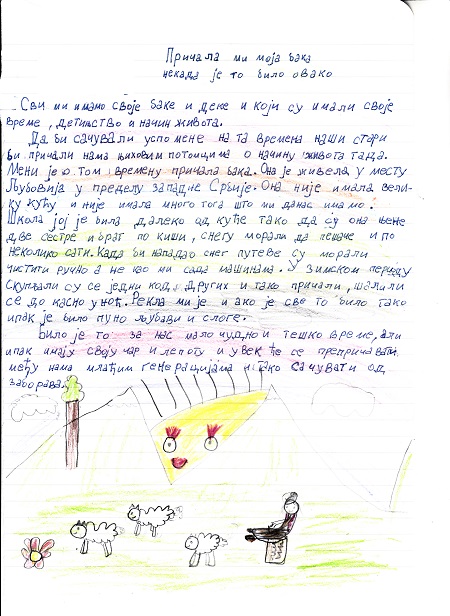 Причала ми моја бака
некада је то било овако
Сви ми имамо своје баке и деке и који су имали своје
време, детињство и начин живота.
Да би сачували успомене на та времена наши стари
би причали нама њиховим потомцима о начину живота тада.
Мени је о том времену причала бака. Она је живела у месту
Љубовија у пределу западне Србије. Она није имала вели-
ку кућу и није имала много тога што ми данас имамо.
Школа јој је била далеко од куће тако да су она њене
две сестре и брат по киши, снегу морали да пешаче и по
неколико сати. Када би нападао снег путеве су морали
чистити ручно а не као ми сада машинама. У зимском периоду
скупљали су се једни код других и тако причали, шалили
се до касно у ноћ. Рекла ми је и ако је све то било тако
ипак је било пуно љубави и слоге.
Било је то за нас мало чудно и тешко време, али
ипак имају своју чар и лепоту и увек ће се препричавати
међу нама млађим генерацијама и тако сачувати од
заборава.